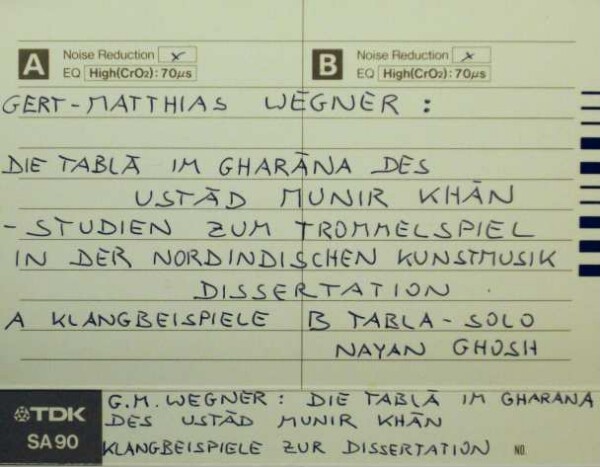 A Noise Reduction x B Noise Reduction x
EQ High(CrO₂): 70µs EQ High(CrO₂): 70µs
GERT-MATTHIAS WEGNER :
DIE TABLĀ IM GHARĀNA DES
USTĀD MUNIR KHĀN
- STUDIEN ZUM TROMMELSPIEL
IN DER NORDINDISCHEN KUNSTMUSIK
DISSERTATION
A KLANGBEISPIELE B TABLA-SOLO
NAYAN GHOSH
TDK
SA90
G.M. WEGNER : DIE TABLĀ IM GHARANA
DES USTĀD MUNIR KHĀN
KLANGBEISPIELE ZUR DISSERTATION NO.